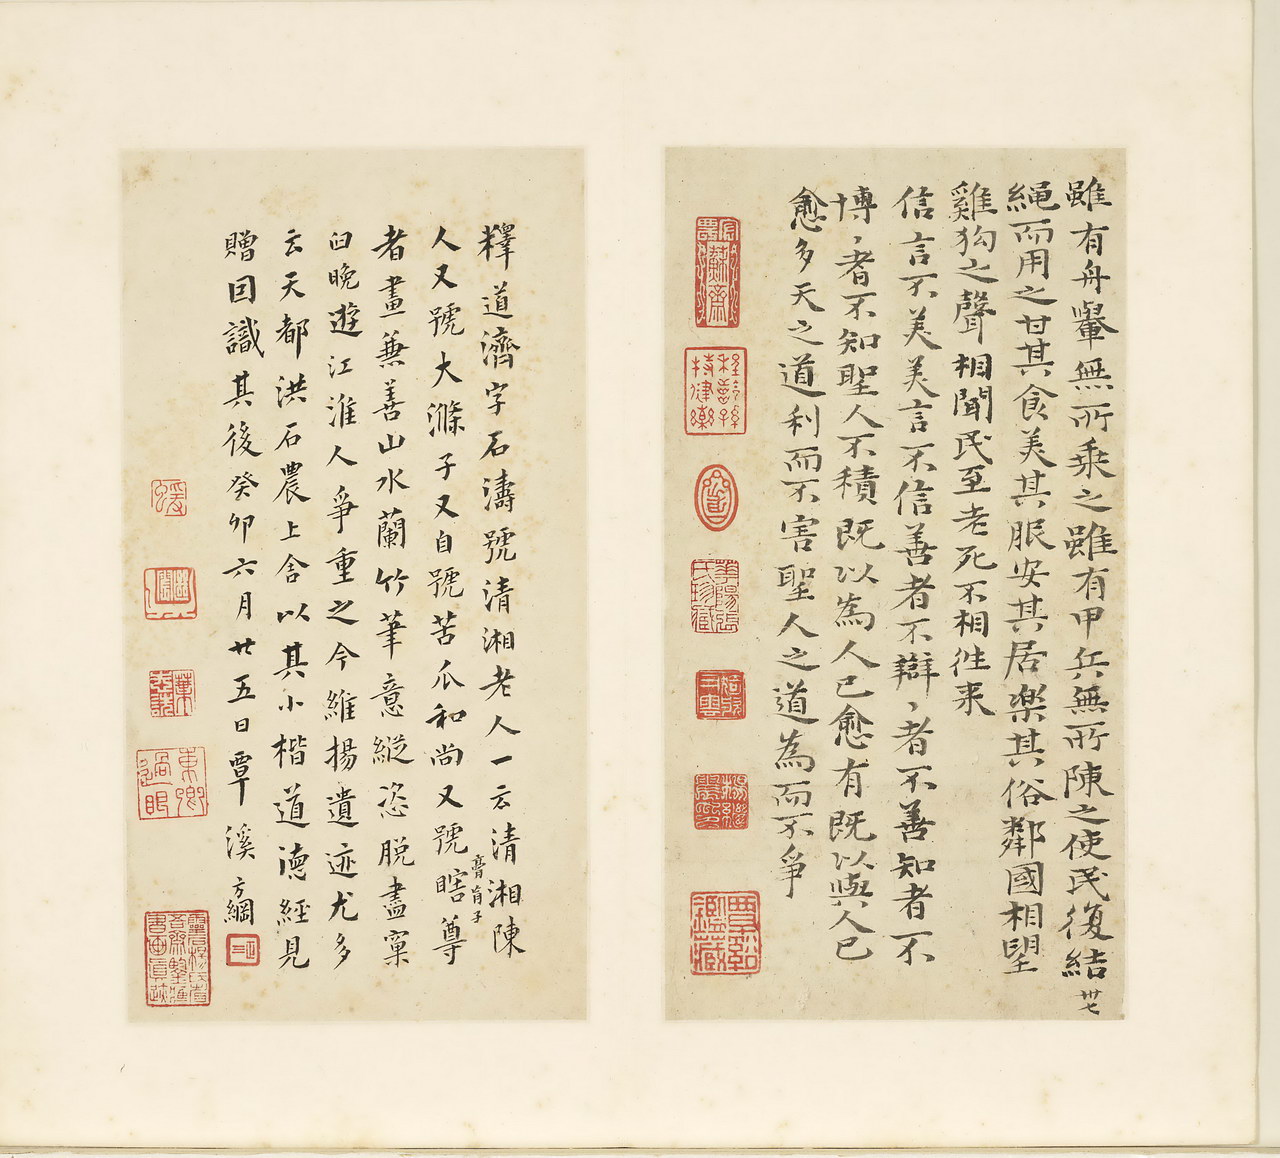 雖有舟轝無所乘之雖有甲兵無所陳之使民復結
卅七
繩而用之甘其食美其服安其居樂其俗鄰國相望
雞狗之聲相聞民至老死不相徃来
信言不美美言不信善者不辯、者不善知者不
博、者不知聖人不積既以為人己愈有既以與人已
愈多天之道利而不害聖人之道為而不爭
釋道濟字石濤號清湘老人一云清湘陳
人又號大滌子又自號苦瓜和尚又號瞎尊
膏肓子
者畫兼善山水蘭竹筆意縱恣脫盡窠
臼晚遊江淮人爭重之今維揚遺迹尤多
云天都洪石農上舍以其小楷道德經見
贈因識其後癸卯六月廿五日覃溪方綱